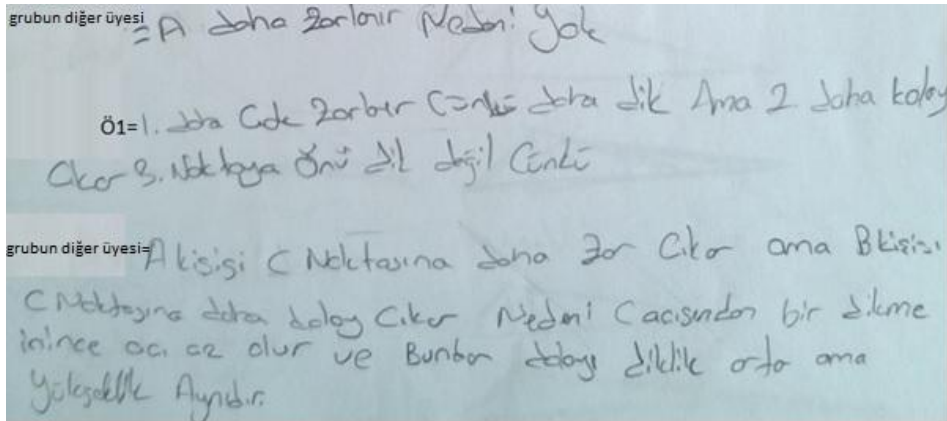 grubun diğer üyesi = A daha zorlanır Nedeni Yok
Ö1= 1. daha Çok Zorlanır Çünkü daha dik Ama 2 daha kolay
Çıkar 3. Noktaya Önü dik değil Çünkü
grubun diğer üyesi= A kişisi C Noktasına daha Zor Çıkar ama B kişisi
C Noktasına daha kolay Çıkar Nedeni C açısından bir dikme
inince açı az olur ve Bundan dolayı diklik artar ama
Yükseklik Aynıdır.